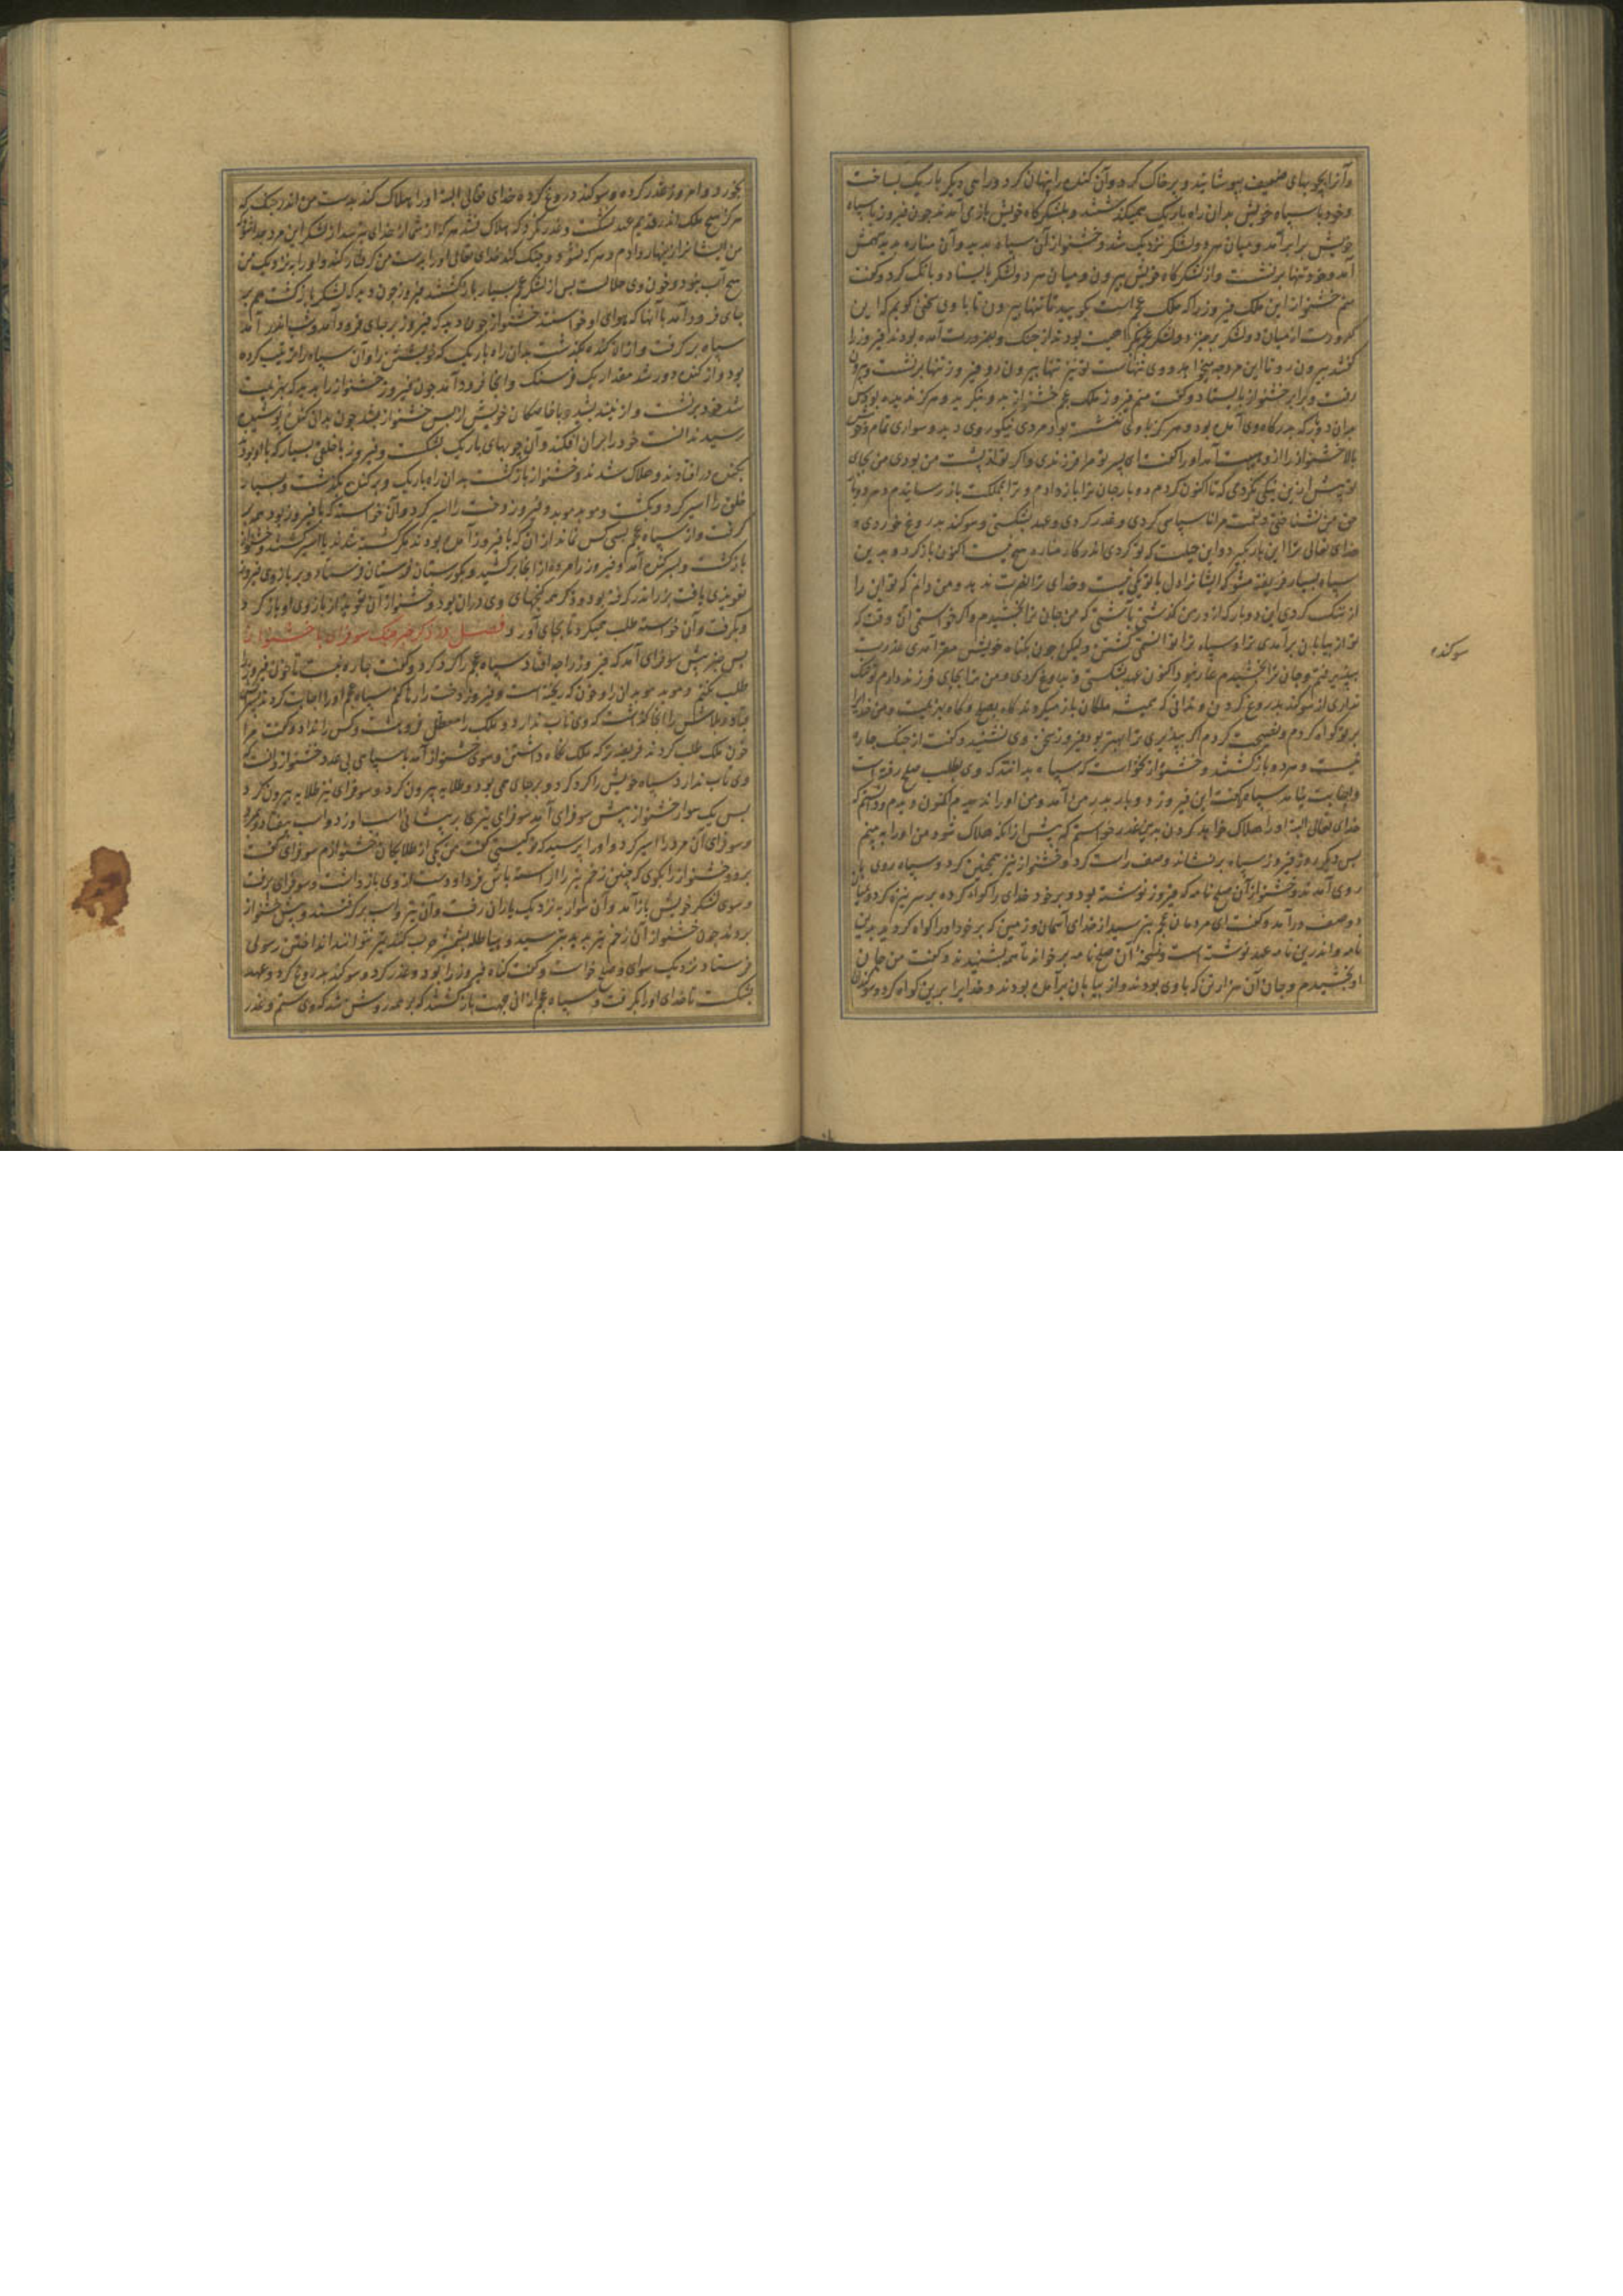 وآنرا بچوبهای ضعیف بپوشانید و بر خاک کرد وآن کنده را پنهان کرد و راهی دیگر باریک بساخت
وخود با سپاه خویش بدان راه باریک همیگذشتند و بلشکرگاه خویش بازی آمد چون فیروز با سپاه
خویش برابر آمد و میان هر دو لشکر نزدیک شد و خشنواز آن سپاه بدید وآن مناره بدید بهش
آمد وخود تنها برنشت واز لشکرگاه خویش بیرون و میان هر دو لشکر بایستاد و بانگ کرد وگفت
منم خشنواز این ملک فیروز را که ملک عجم است بگویید تا تنها بیرون تا با وی سخن گویم که این
کنند بیرون رو تا این مرد چه میخواهد و وی تنهاست تو نیز تنها بیرون رو فیروز تنها برنشت و بیرون
رفت و برابر خشنواز بایستاد و گفت منم فیروز ملک عجم خشنواز بدو بنگرید و هرگز ندیده بود پس
بدان روز که بدرگاه وی آمده بود و هرگز با وی ننشسته بود مردی نیکو روی دید و سواری تمام و خوش
بالا خشنواز را از و هیبت آمد او را گفت ای پسر تو مرا فرزندی واگر تو از پشت من بودی من بجای
تو بیش ازین نیکی نکردی که تا اکنون کردم دو بار جان ترا باز دادم و ترا بمملکت باز رسانیدم و هر دو بار
حق من نشناختی و نعمت مرا ناسپاسی کردی و غدر کردی و عهد بشکستی و سوکند بدروغ خوردی
خدای تعالی ترا این بار بگیرد و این حیلت که تو کردی اندر کار مناره هیچ نیست اکنون باز گرد و بدین
سپاه بسیار فریفته مشو که ایشانرا دل با تو یکی نیست وخدای ترا نصرت ندهد و من دانم که تو این را
از ننگ کردی این دو بار که از در من گذشتی بآشتی که من جان ترا بخشیدم واگر خواستمی آن وقت که
تو از بیابان برآمدی ترا و سپاه ترا توانستی کشتن ولیکن چون بگناه خویش مقر آمدی عذرت
بپذیرفتم وجان ترا بخشیدم عار نبود اکنون عهد بشکستی و دروغ کردی و من ترا بجای فرزند دارم تو ننگ
نداری از سوکند بدروغ کردن و ندانی که همیشه ملکان باز میگردند گاه بصلح و گاه بهزیمت و من خدایرا
بر تو گواه کردم و نصیحت کردم اگر بپذیری ترا بهتر بود فیروز سخن وی نشنید و گفت از جنگ چاره
نیست و هر دو بازگشتند و خشنواز نخواست که سپاه بدانند که وی بطلب صلح رفته است
خدای تعالی البته او را هلاک خواهد کردن بدین غدر خواستم که پیش از آنکه هلاک شود من او را ببینم
پس دیگر روز فیروز سپاه برنشاند وصف راست کرد و خشنواز نیز همچنین کرد و سپاه روی با
روی آمدند و خشنواز آن صلح نامه که فیروز نوشته بود و بر خود خدای را گواه کرده بر سر نیزه کرد و میان
دو صف درآمد و گفت ای مردمان عجم بترسید از خدای آسمان و زمین که بر خود او را گواه کردید بدین
نامه واندرین نامه عهد نوشته است و آن صلح نامه بر خواند تا همه بشنیدند و گفت من جان
او بخشیدم وجان آن هزار تن که با وی بودند واز بیابان برآمده بودند و خدایرا برین گواه کرد و سوکندان
سوکنده
بخورد و امروز غدر کرده و سوکند دروغ کرده خدای تعالی البته او را هلاک کند بدست من اندر جنگ که
هرگز هیچ ملک اندر قدیم عهد نشکست و غدر نکرد که هلاک نشد هر که از شما از خدای بترسد از لشکر این مرد جدا شود
من ایشانرا زینهار دادم و هر که نشود و جنگ کند خدای تعالی او را بدست من گرفتار کند و او را بنزدیک من
هیچ آب نبود وخون وی حلالست پس از لشکر عجم بسیار بازگشتند فیروز چون دید که لشکر بازگشت هم بر
جای فرود آمد با آنها که هوای او خواستند خشنواز چون دید که فیروز بر جای فرود آمد و شب اندر آمد
سپاه بر گرفت واز آن کنده بگذشت بدان راه باریک که خویشتن را وآن سپاه را ترتیب کرده
بود واز کنده دور شد مقدار یک فرسنگ وآنجا فرود آمد چون فیروز خشنواز را بدید که بهزیمت
شد خود برنشت و از پس بشد با خاصگان خویش از پس خشنواز بشد چون بدان کنده پوشیده
رسید ندانست خود را بران افکند وآن چوبهای باریک بشکست و فیروز با خلقی بسیار که با او بودند
بکنده در افتادند و هلاک شدند و خشنواز بازگشت بدان راه باریک و بر کنده بگذشت و بسیار
خلق را اسیر کرد و بکشت و موبد موبد و فیروز دخت را اسیر کرد وآن خواسته که با فیروز بود همه بر
گرفت واز سپاه عجم بسی کس نماند ازان که با فیروز آمده بودند مگر کشته شدند یا اسیر گشتند و خشنواز
بازگشت و بسر کنده آمد و فیروز را مرده از آنجا بر کشید و بکورستان فرستاد و بر بازوی فیروز
تعویذی یافت بزر اندر گرفته بود و ذکر همه گنجهای وی دران بود و خشنواز آن تعویذ از بازوی او باز کرد
و بگرفت وآن خواسته طلب میکرد تا بجای آورد فصل در ذکر خبر جنگ سوفرای با خشنواز
پس خبر پیش سوفرای آمد که فیروز را چه افتاد سپاه عجم را گرد کرد و گفت چاره نیست تا خون فیروز
طلب نکنم و موبد موبدان را و خون که ریخته است و فیروز دخت را رها کنم سپاه عجم او را اجابت کردند
قباد و بلاش را آنجا گذاشت که وی تاب ندارد و ملک را معطل فرو هشت و کس را نداد و گفت مرا
خون ملک طلب کردن فریضه تر که ملک نگاه داشتن و سوی خشنواز آمد با سپاهی بی عدد خشنواز دانست که
وی تاب ندارد سپاه خویش را گرد کرد و بر جای می بود و طلایه بیرون کرد و سوفرای نیز طلایه بیرون کرد
پس یک سوار خشنواز پیش سوفرای آمد سوفرای تیرکی بر پیشانی اسب او زد واسب بیفتاد و مرد
و سوفرای آن مرد را اسیر کرد و او را پرسید که تو کیستی گفت من یکی از طلایگان خشنوازم سوفرای گفت
برو و خشنواز را بگوی که چنین زخم تیر را آراسته باش فردا و دست از وی باز داشت و سوفرای برفت
و سوی لشکر خویش باز آمد وآن سوار به نزدیک یاران رفت وآن تیر و اسب بر گرفتند و پیش خشنواز
بردند چون خشنواز آن زخم تیر بدید بترسید
فرستاد نزدیک سوفرای و صلح خواست و گفت گناه فیروز را بود و غدر کرد و سوکند بدروغ کرد و عهد
بشکست تا خدای او را بگرفت و سپاه عجم ازان جهت بازگشتند که بر همه روشن شد که وی ستم و غدر